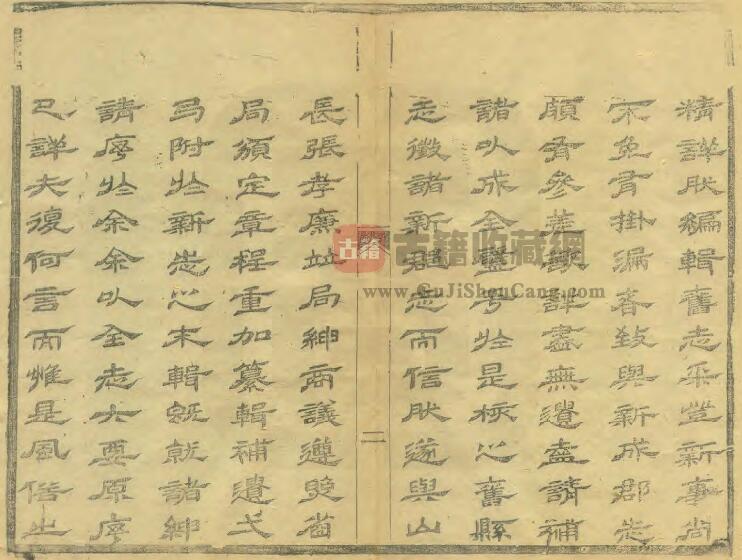 精詳肰編輯舊志采登新事尚
不免有掛漏者致與新成郡志
頗有參差詳盡無遺盍請補
諸以成全璧乎於是核之舊縣
志徵諸新郡志而信肰遂與山
二
長張孝廉竝局紳商議遵照省
局頒定章程重加纂輯補遺弌
弓附於新志之末輯既就諸紳
請序於余余以全志大要原序
已詳夫復何言而惟是風俗之
古籍
古籍收藏網
www.GuJiShouCang.com